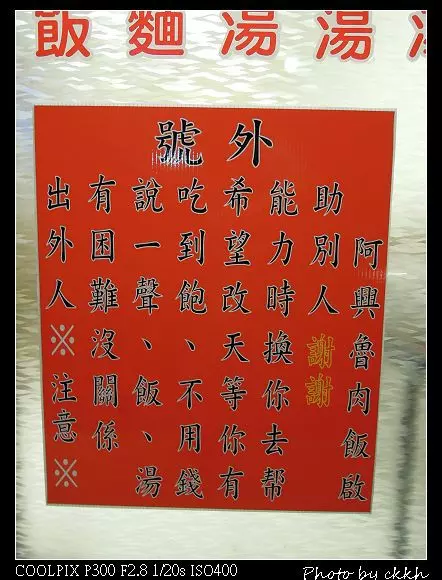 飯麵湯湯
號外
出外人※注意※
有困難沒關係
說一聲、飯、湯
吃到飽、不用錢
希望改天等你有
能力時換你去帮
助別人 謝謝
阿興魯肉飯啟
COOLPIX P300 F2.8 1/20s ISO400
Photo by ckkh